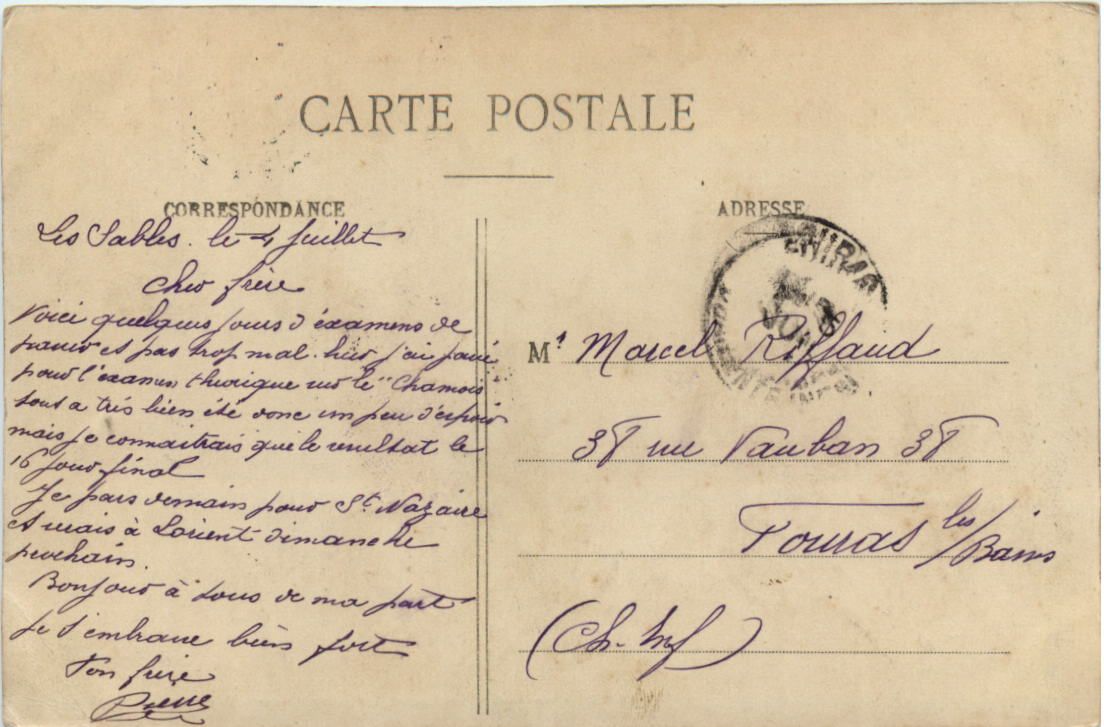 CARTE POSTALE
CORRESPONDANCE
Les Sables. le 4 Juillet
Cher frère
Voici quelques jours d'examens de
franco et pas trop mal. hier j'ai passé
pour l'examen théorique sur le "Chamois"
tout a très bien été donc un peu d'espoir
mais je connaitrais que le resultat le
16 jour final
Je pars demain pour St. Nazaire
et serais à Lorient dimanche
prochain.
Bonjour à tous de ma part
Je t'embrasse bien fort
Ton frère
Pierre
ADRESSE
Mr Marcel Riffaud
38 rue Vauban 38
Fouras les/Bains
(Ch-Inf)
FOURAS